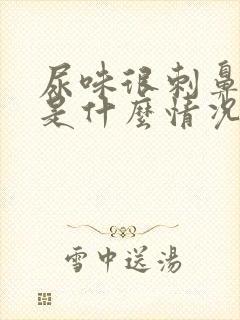 尿味很刺鼻
是什麼情況
雪中送湯